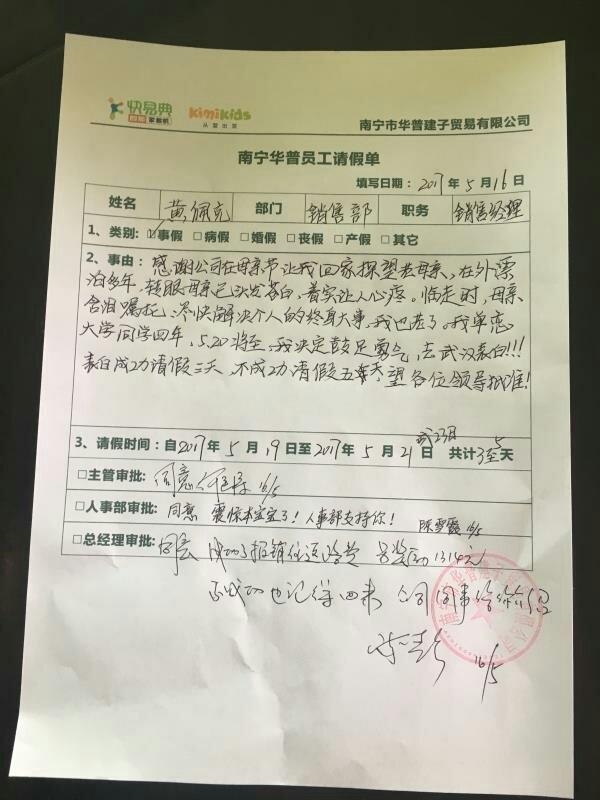 快易典
kimikids
从婴出发
南宁市华普建子贸易有限公司
南宁华普员工请假单
填写日期：2017年5月16日
姓名 黄佩克 部门 销售部 职务 销售经理
1、类别：☑事假 □病假 □婚假 □丧假 □产假 □其它
2、事由：感谢公司在母亲节让我回家探望老母亲，在外漂
泊多年，转眼母亲已头发苍白，着实让人心疼。临走时，母亲
含泪嘱托，尽快解决个人的终身大事，我也老了。我单恋
大学同学四年，5.20将至，我决定鼓足勇气，去武汉表白!!!
表白成功请假三天，不成功请假五天，望各位领导批准！
3、请假时间：自2017年5月19日至2017年5月21日 或23日 共计3至5天
□主管审批：同意 16/5
□人事部审批：同意 震惊本宝宝了！人事部支持你！ 陈雪霞 16/5
□总经理审批：同意 成功了报销往返路费 另奖励1314元
不成功也记得回来 公司同事给你介绍
16/5